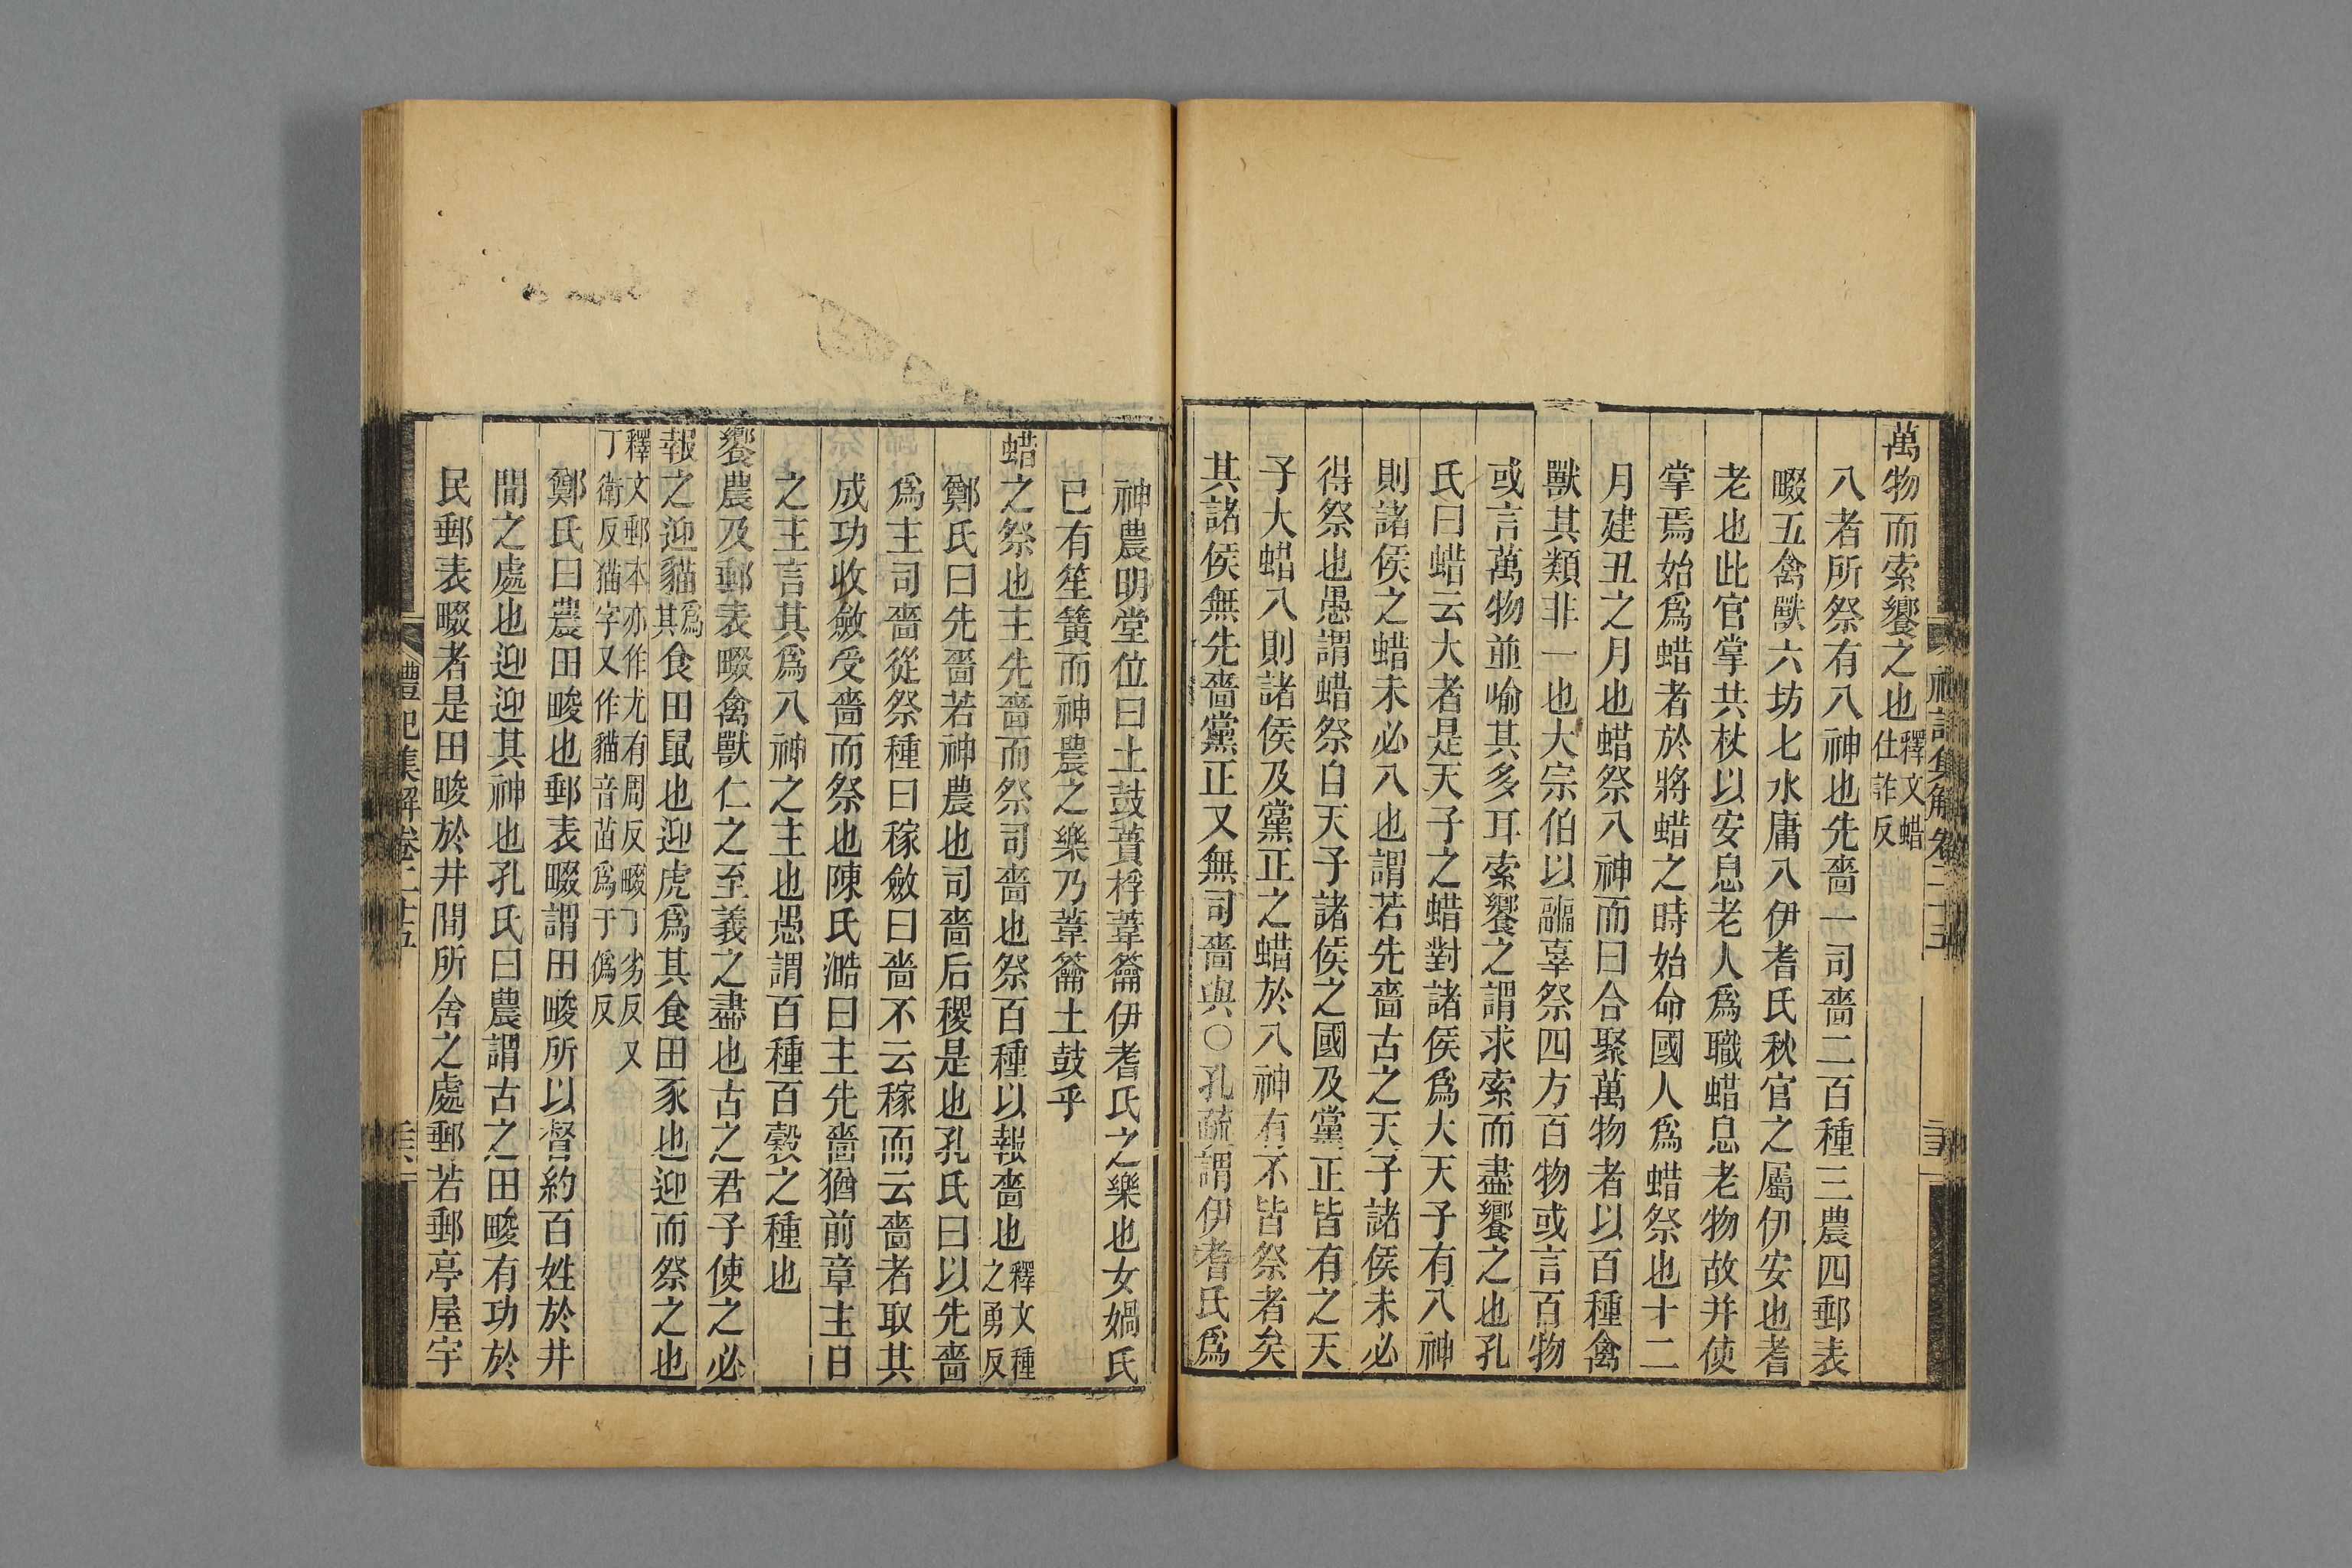 萬物而索饗之也釋文蜡仕詐反
八者所祭有八神也先嗇一司嗇二百種三農四郵表
畷五禽獸六坊七水庸八伊耆氏秋官之屬伊安也耆
老也此官掌共杖以安息老人爲職蜡息老物故并使
掌焉始爲蜡者於將蜡之時始命國人爲蜡祭也十二
月建丑之月也蜡祭八神而曰合聚萬物者以百種禽
獸其類非一也大宗伯以疈辜祭四方百物或言百物
或言萬物並喻其多耳索饗之謂求索而盡饗之也孔
氏曰蜡云大者是天子之蜡對諸侯爲大天子有八神
則諸侯之蜡未必八也謂若先嗇古之天子諸侯未必
得祭也愚謂蜡祭自天子諸侯之國及黨正皆有之天
子大蜡八則諸侯及黨正之蜡於八神有不皆祭者矣
其諸侯無先嗇黨正又無司嗇與○孔疏謂伊耆氏爲
神農明堂位曰土鼓蕢桴葦籥伊耆氏之樂也女媧氏
已有笙簧而神農之樂乃葦籥土鼓乎
蜡之祭也主先嗇而祭司嗇也祭百種以報嗇也釋文種之勇反
鄭氏曰先嗇若神農也司嗇后稷是也孔氏曰以先嗇
爲主司嗇從祭種曰稼斂曰嗇不云稼而云嗇者取其
成功收斂受嗇而祭也陳氏澔曰主先嗇猶前章主日
之主言其爲八神之主也愚謂百種百穀之種也
饗農及郵表畷禽獸仁之至義之盡也古之君子使之必
報之迎貓爲其食田鼠也迎虎爲其食田豕也迎而祭之也
釋文郵本亦作尤有周反畷丁劣反又
丁衛反猫字又作貓音苗爲于僞反
鄭氏曰農田畯也郵表畷謂田畯所以督約百姓於井
間之處也迎迎其神也孔氏曰農謂古之田畯有功於
民郵表畷者是田畯於井間所舍之處郵若郵亭屋宇
禮記集解卷二十五